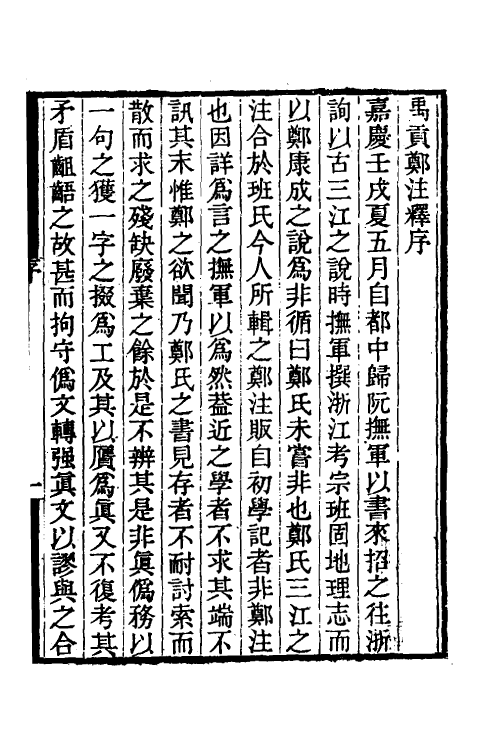 禹貢鄭注釋序
嘉慶壬戌夏五月自都中歸阮撫軍以書來招之往浙
詢以古三江之說時撫軍撰浙江考宗班固地理志而
以鄭康成之說爲非循曰鄭氏未嘗非也鄭氏三江之
注合於班氏今人所輯之鄭注販自初學記者非鄭注
也因詳爲言之撫軍以爲然葢近之學者不求其端不
訊其末惟鄭之欲聞乃鄭氏之書見存者不耐討索而
散而求之殘缺廢棄之餘於是不辨其是非眞僞務以
一句之獲一字之掇爲工及其以贗爲眞又不復考其
矛盾齟齬之故甚而拘守僞文轉强眞文以謬與之合
序
一